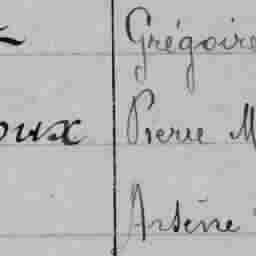 Grégoire
oux Pierre M
Arsène